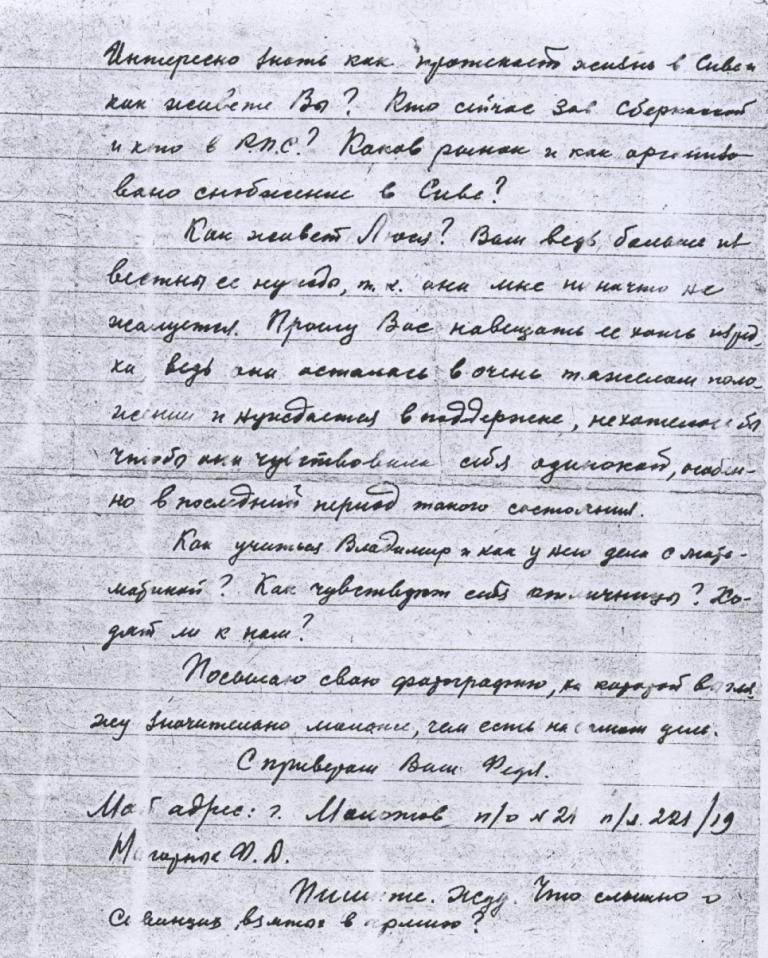 Интересно знать как протекает жизнь в Сиве и
как живете Вы? Кто сейчас зав Сберкассой
и кто в Р.П.С.? Каков рынок и как организо
вано снабжение в Сиве?
Как живет Люся? Вам ведь больше из
вестны ее нужды, т.к. она мне ни на что не
жалуется. Прошу Вас навещать ее хоть изред-
ка, ведь она осталась в очень тяжелом поло-
жении и нуждается в поддержке, не хотелось бы
чтобы она чувствовала себя одинокой, особен-
но в последний период такого состояния.
Как учиться Владимир и как у него дела с мате-
матикой? Как чувствуют себя отличницы? Хо-
дят ли к нам?
Посылаю свою фотографию, на которой выгля-
жу значительно моложе, чем есть на самом деле.
С приветом Ваш Федя.
Мой адрес: г. Молотов п/о №21 п/я 221/19
Ф. Д.
Пишите. Жду. Что слышно о
Сивинцах, взятых в армию?